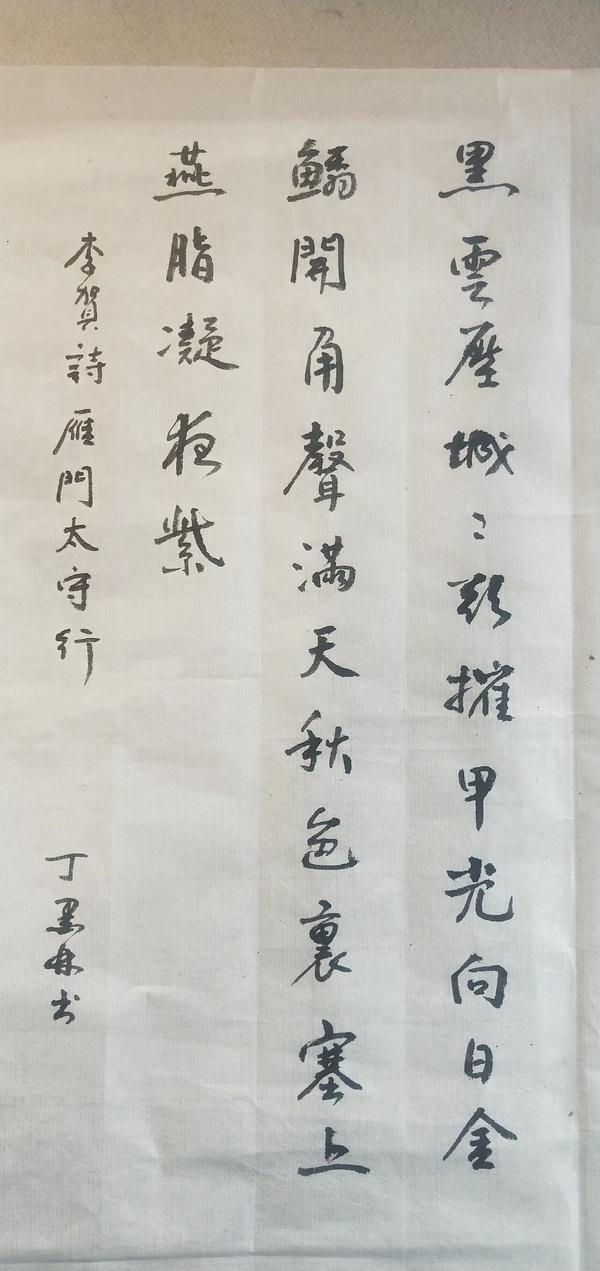 黑雲壓城〻欲摧甲光向日金
鱗開角聲滿天秋色裏塞上
燕脂凝夜紫
李賀詩雁門太守行
丁墨林书